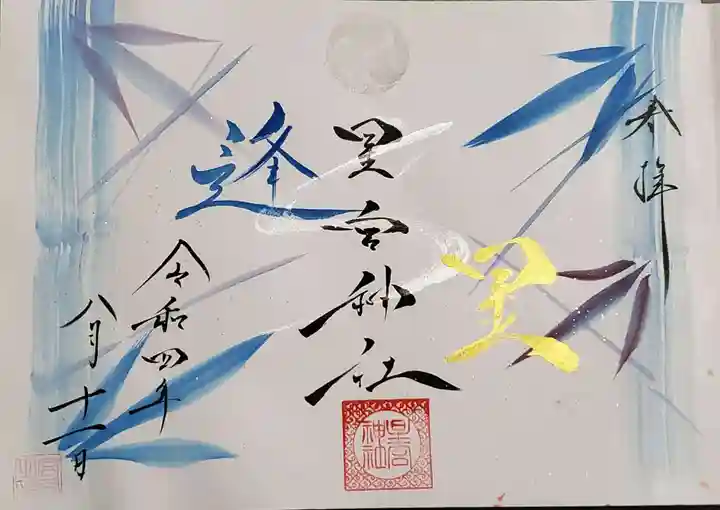 奉拝
星
星宮神社
逢
令和四年
八月十一日
星宮神社